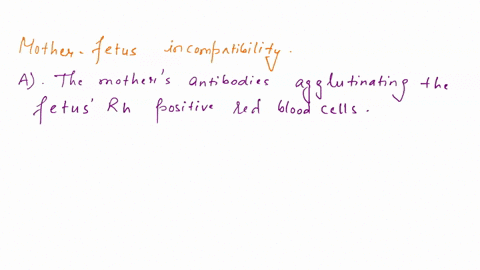 Mother-fetus incompatibility.
A). The mother's antibodies agglutinating the
fetus' Rh positive red blood cells.